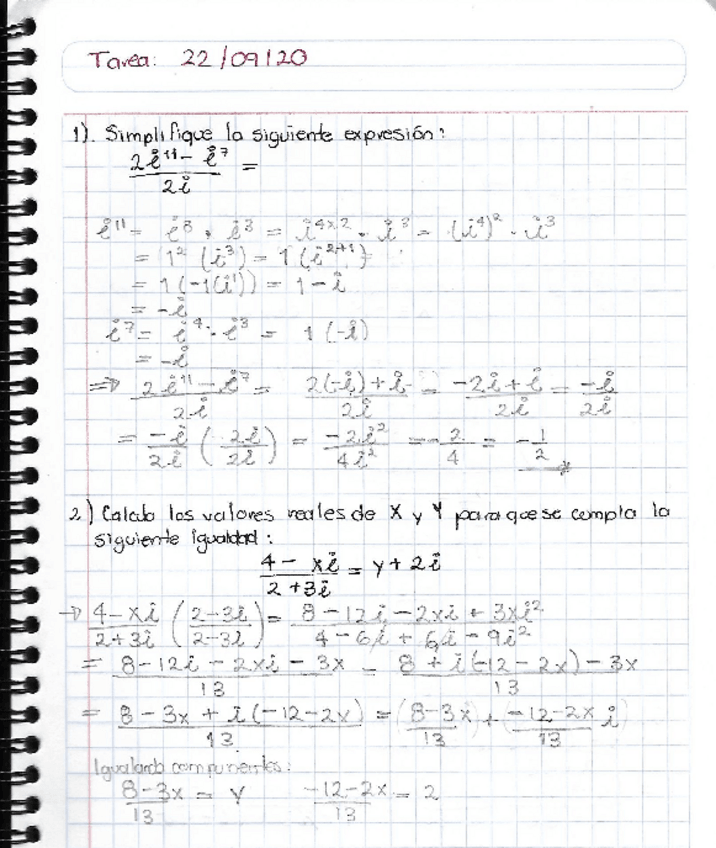 Tarea: 22/09/20
1). Simplifique la siguiente expresión:
(2i¹¹ - i⁷)/2i =
i¹¹ = i⁸ · i³ = i⁴ˣ² · i³ = (i⁴)² · i³
= 1² (i³) = 1(i²⁺¹)
= 1(-1(i¹)) = 1-i
= -i
i⁷ = i⁴ · i³ = 1(-i)
= -i
⇒ (2i¹¹ - i⁷)/2i = (2(-i)+i)/2i = (-2i+i)/2i = -i/2i
= -i/2i (2i/2i) = -2i²/4i² = -2/4 = -1/2
2) Calcula los valores reales de X y Y para que se cumpla la
siguiente igualdad:
(4 - xi)/(2+3i) = y + 2i
→ (4-xi)/(2+3i) ((2-3i)/(2-3i)) = (8-12i-2xi+3xi²)/(4-6i+6i-9i²)
= (8-12i-2xi-3x)/13 = (8+i(-12-2x)-3x)/13
= (8-3x+i(-12-2x))/13 = ((8-3x)/13) + ((-12-2x)/13 i)
Igualando componentes:
(8-3x)/13 = y (-12-2x)/13 = 2